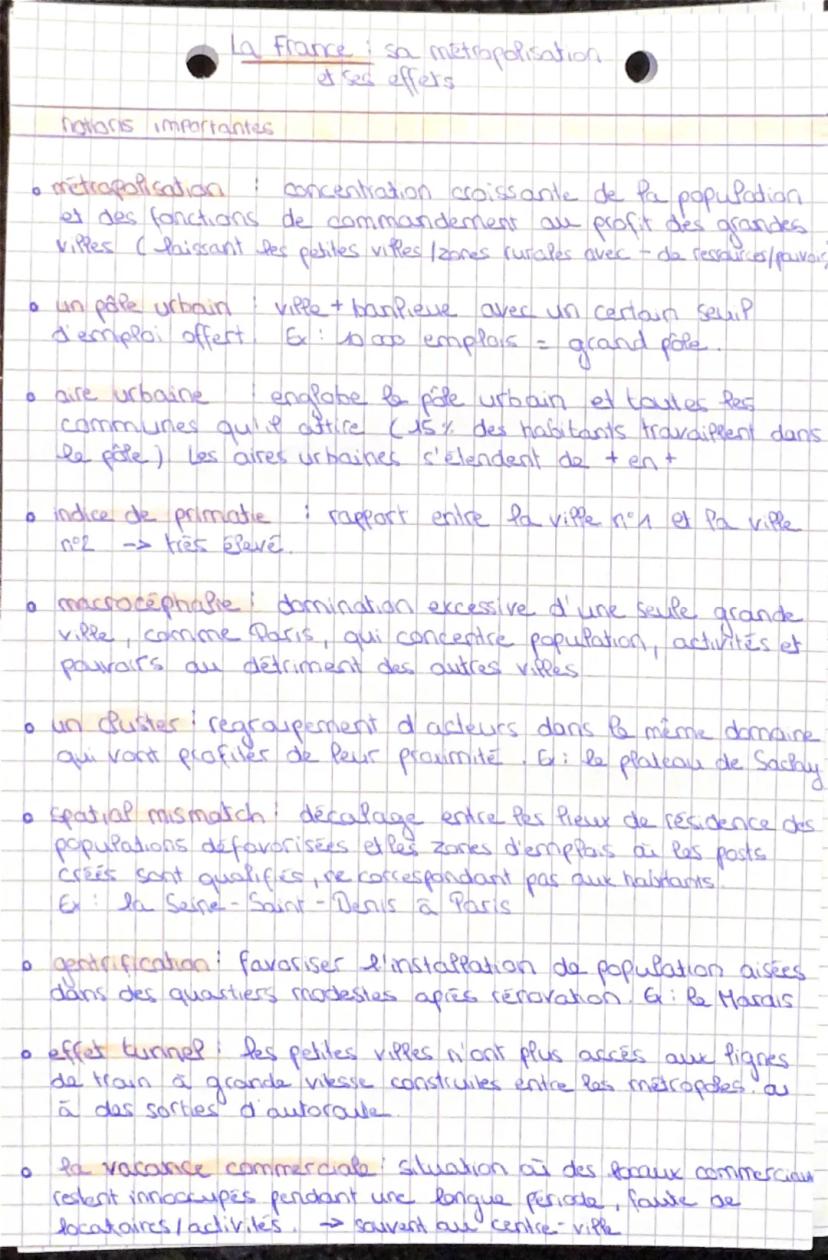 La France : sa métropolisation
et ses effets
notions importantes
• métropolisation : concentration croissante de la population
et des fonctions de commandement au profit des grandes
villes ( laissant les petites villes /zones rurales avec - de ressources/pouvoirs
• un pôle urbain : ville + banlieue avec un certain seuil
d'emploi offert. Ex : 10 000 emplois = grand pôle.
• aire urbaine : englobe le pôle urbain et toutes les
communes qu'il attire (15% des habitants travaillent dans
le pôle). Les aires urbaines s'étendent de + en +
• indice de primatie : rapport entre la ville n°1 et la ville
n°2 -> très élevé.
• macrocéphalie : domination excessive d'une seule grande
ville, comme Paris, qui concentre population, activités et
pouvoirs au détriment des autres villes
• un cluster : regroupement d'acteurs dans le même domaine
qui vont profiter de leur proximité. Ex : le plateau de Saclay
• spatial mismatch : décalage entre les lieux de résidence des
populations défavorisées et les zones d'emplois où les posts
créés sont qualifiés, ne correspondant pas aux habitants.
Ex : la Seine-Saint-Denis à Paris
• gentrification : favoriser l'installation de population aisées
dans des quartiers modestes après rénovation. Ex : le Marais
• effet tunnel : les petites villes n'ont plus accès aux lignes
de train à grande vitesse construites entre les métropoles. ou
à des sorties d'autoroute.
• la vacance commerciale : situation où des locaux commerciau
restent innoccupés pendant une longue période, faute de
locataires/activités. -> souvent au centre-ville